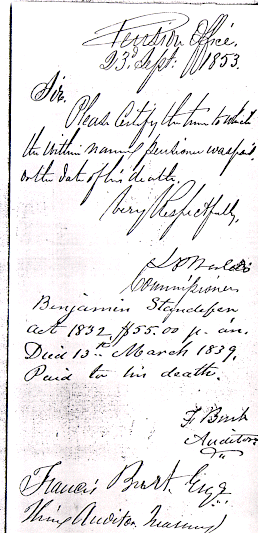 Pension Office,
23d Sept. 1853.
Sir.
Please Certify the time to which
the within named pensioner was paid,
or the date of his death.
Very Respectfully,
Commissioner
Benjamin Standefer
act 1832, $55.00 pr. an.
Died 13th March 1839.
Paid to his death.
F Burt
Auditor
Francis Burt, Esq.
Third Auditor Treasury